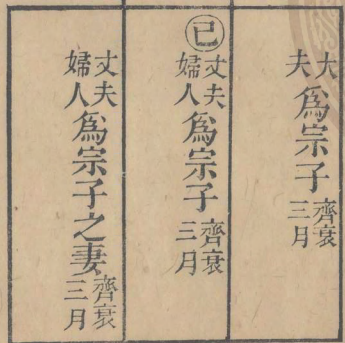 大夫爲宗子齊衰三月
己丈夫婦人爲宗子齊衰三月
丈夫婦人爲宗子之妻齊衰三月